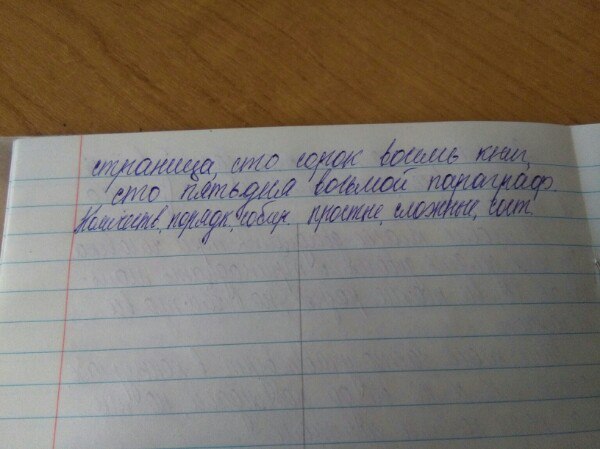 страница, сто сорок восемь книг,
сто пятьдля восьмой параграф
Количеств, порядк, собир. простые, сложные, сит.